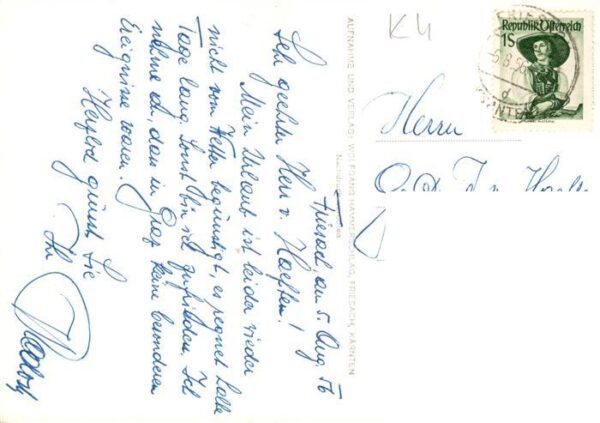 Friesach, am 5. Aug. 56
Sehr geehrter Herr v. Haeften!
Mein Urlaub ist leider wieder
nicht vom Wetter begünstigt, es regnet halbe
Tage lang. Sonst bin ich zufrieden. Ich
nehme an, dass in Graz keine besonderen
Ereignisse waren.
Herzlich grüsst Sie
Ihr
AUFNAHME UND VERLAG: WOLFGANG HAMMERSCHLAG, FRIESACH, KÄRNTEN
K4
Republik Österreich
1S
Herrn